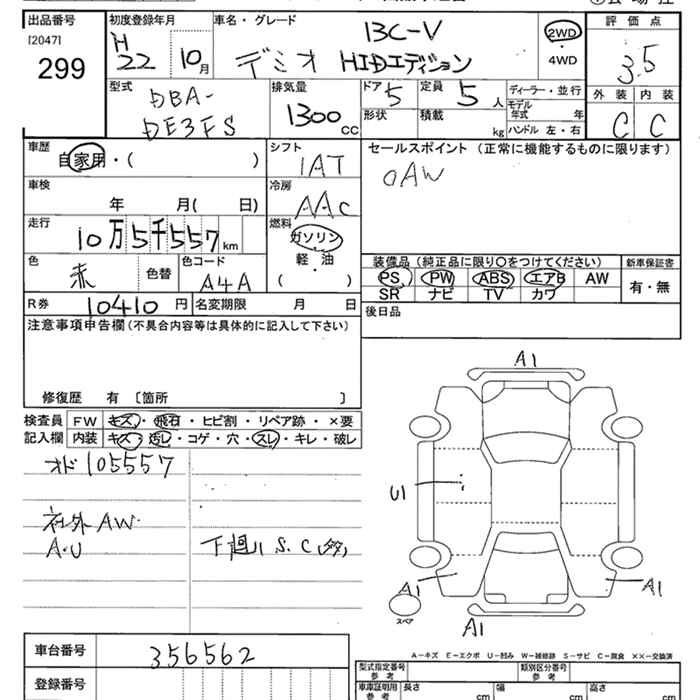 出品番号 初度登録年月 車名・グレード 評価点
[2047] H 13C-V 2WD
299 22 10月 デミオ HIDエディション ・ 4WD 3.5
型式 排気量 ドア 定員 ディーラー・並行 外装 内装
DBA- 1300cc 5 5人 モデル年式 年 C C
DE3FS 形状 積載 kg ハンドル 左・右
車歴 シフト セールスポイント (正常に機能するものに限ります)
自家用・( ) IAT OAW
車検 冷房
年 月( 日) AAC
走行 燃料
10万5千557km ガソリン
軽・油
( )
色 色替 色コード 装備品(純正品に限り○をつけてください) 新車保証書
赤 A4A PS PW ABS エアB AW 有・無
SR ナビ TV カワ
R券 10410円 名変期限 月 日 後日品
注意事項申告欄(不具合内容等は具体的に記入して下さい)
修復歴 有 〔箇所 〕
検査員 FW キズ・飛石・ヒビ割・リペア跡・×要
記入欄 内装 キズ・汚レ・コゲ・穴・スレ・キレ・破レ
オド105557
社外AW
A・U 下廻りS、C(多)
A1
U1
A1 A1
スペア
A1
A-キズ E-エクボ U-凹み W-補修跡 S-サビ C-腐食 ××-交換済
車台番号 356562
登録番号
型式指定番号 参考 類別区分番号 参考
車庫証明用 参考 長さ cm 幅 cm 高さ cm